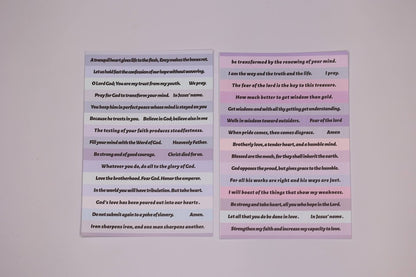 A tranquil heart gives life to the flesh, Envy makes the bones rot.
Let us hold fast the confession of our hope without wavering.
O Lord God; You are my trust from my youth. We pray.
Pray for God to transform your mind. In Jesus' name.
You keep him in perfect peace whose mind is stayed on you
Because he trusts in you. Believe in God; believe also in me
The testing of your faith produces steadfastness.
Fill your mind with the Word of God. Heavenly Father.
Be strong and of good courage. Christ died for us.
Whatever you do, do all to the glory of God.
Love the brotherhood. Fear God. Honor the emperor.
In the world you will have tribulation. But take heart.
God's love has been poured out into our hearts.
Do not submit again to a yoke of slavery. Amen.
Iron sharpens iron, and one man sharpens another.
be transformed by the renewing of your mind.
I am the way and the truth and the life. I pray.
The fear of the lord is the key to this treasure.
How much better to get wisdom than gold.
Get wisdom and with all thy getting get understanding.
Walk in wisdom toward outsiders. Fear of the lord
When pride comes, then comes disgrace. Amen
Brotherly love, a tender heart, and a humble mind.
Blessed are the meek, for they shall inherit the earth.
God opposes the proud, but gives grace to the humble.
For all his works are right and his ways are just.
I will boast of the things that show my weakness.
Be strong and take heart, all you who hope in the Lord.
Let all that you do be done in love. In Jesus' name.
Strengthen my faith and increase my capacity to love.